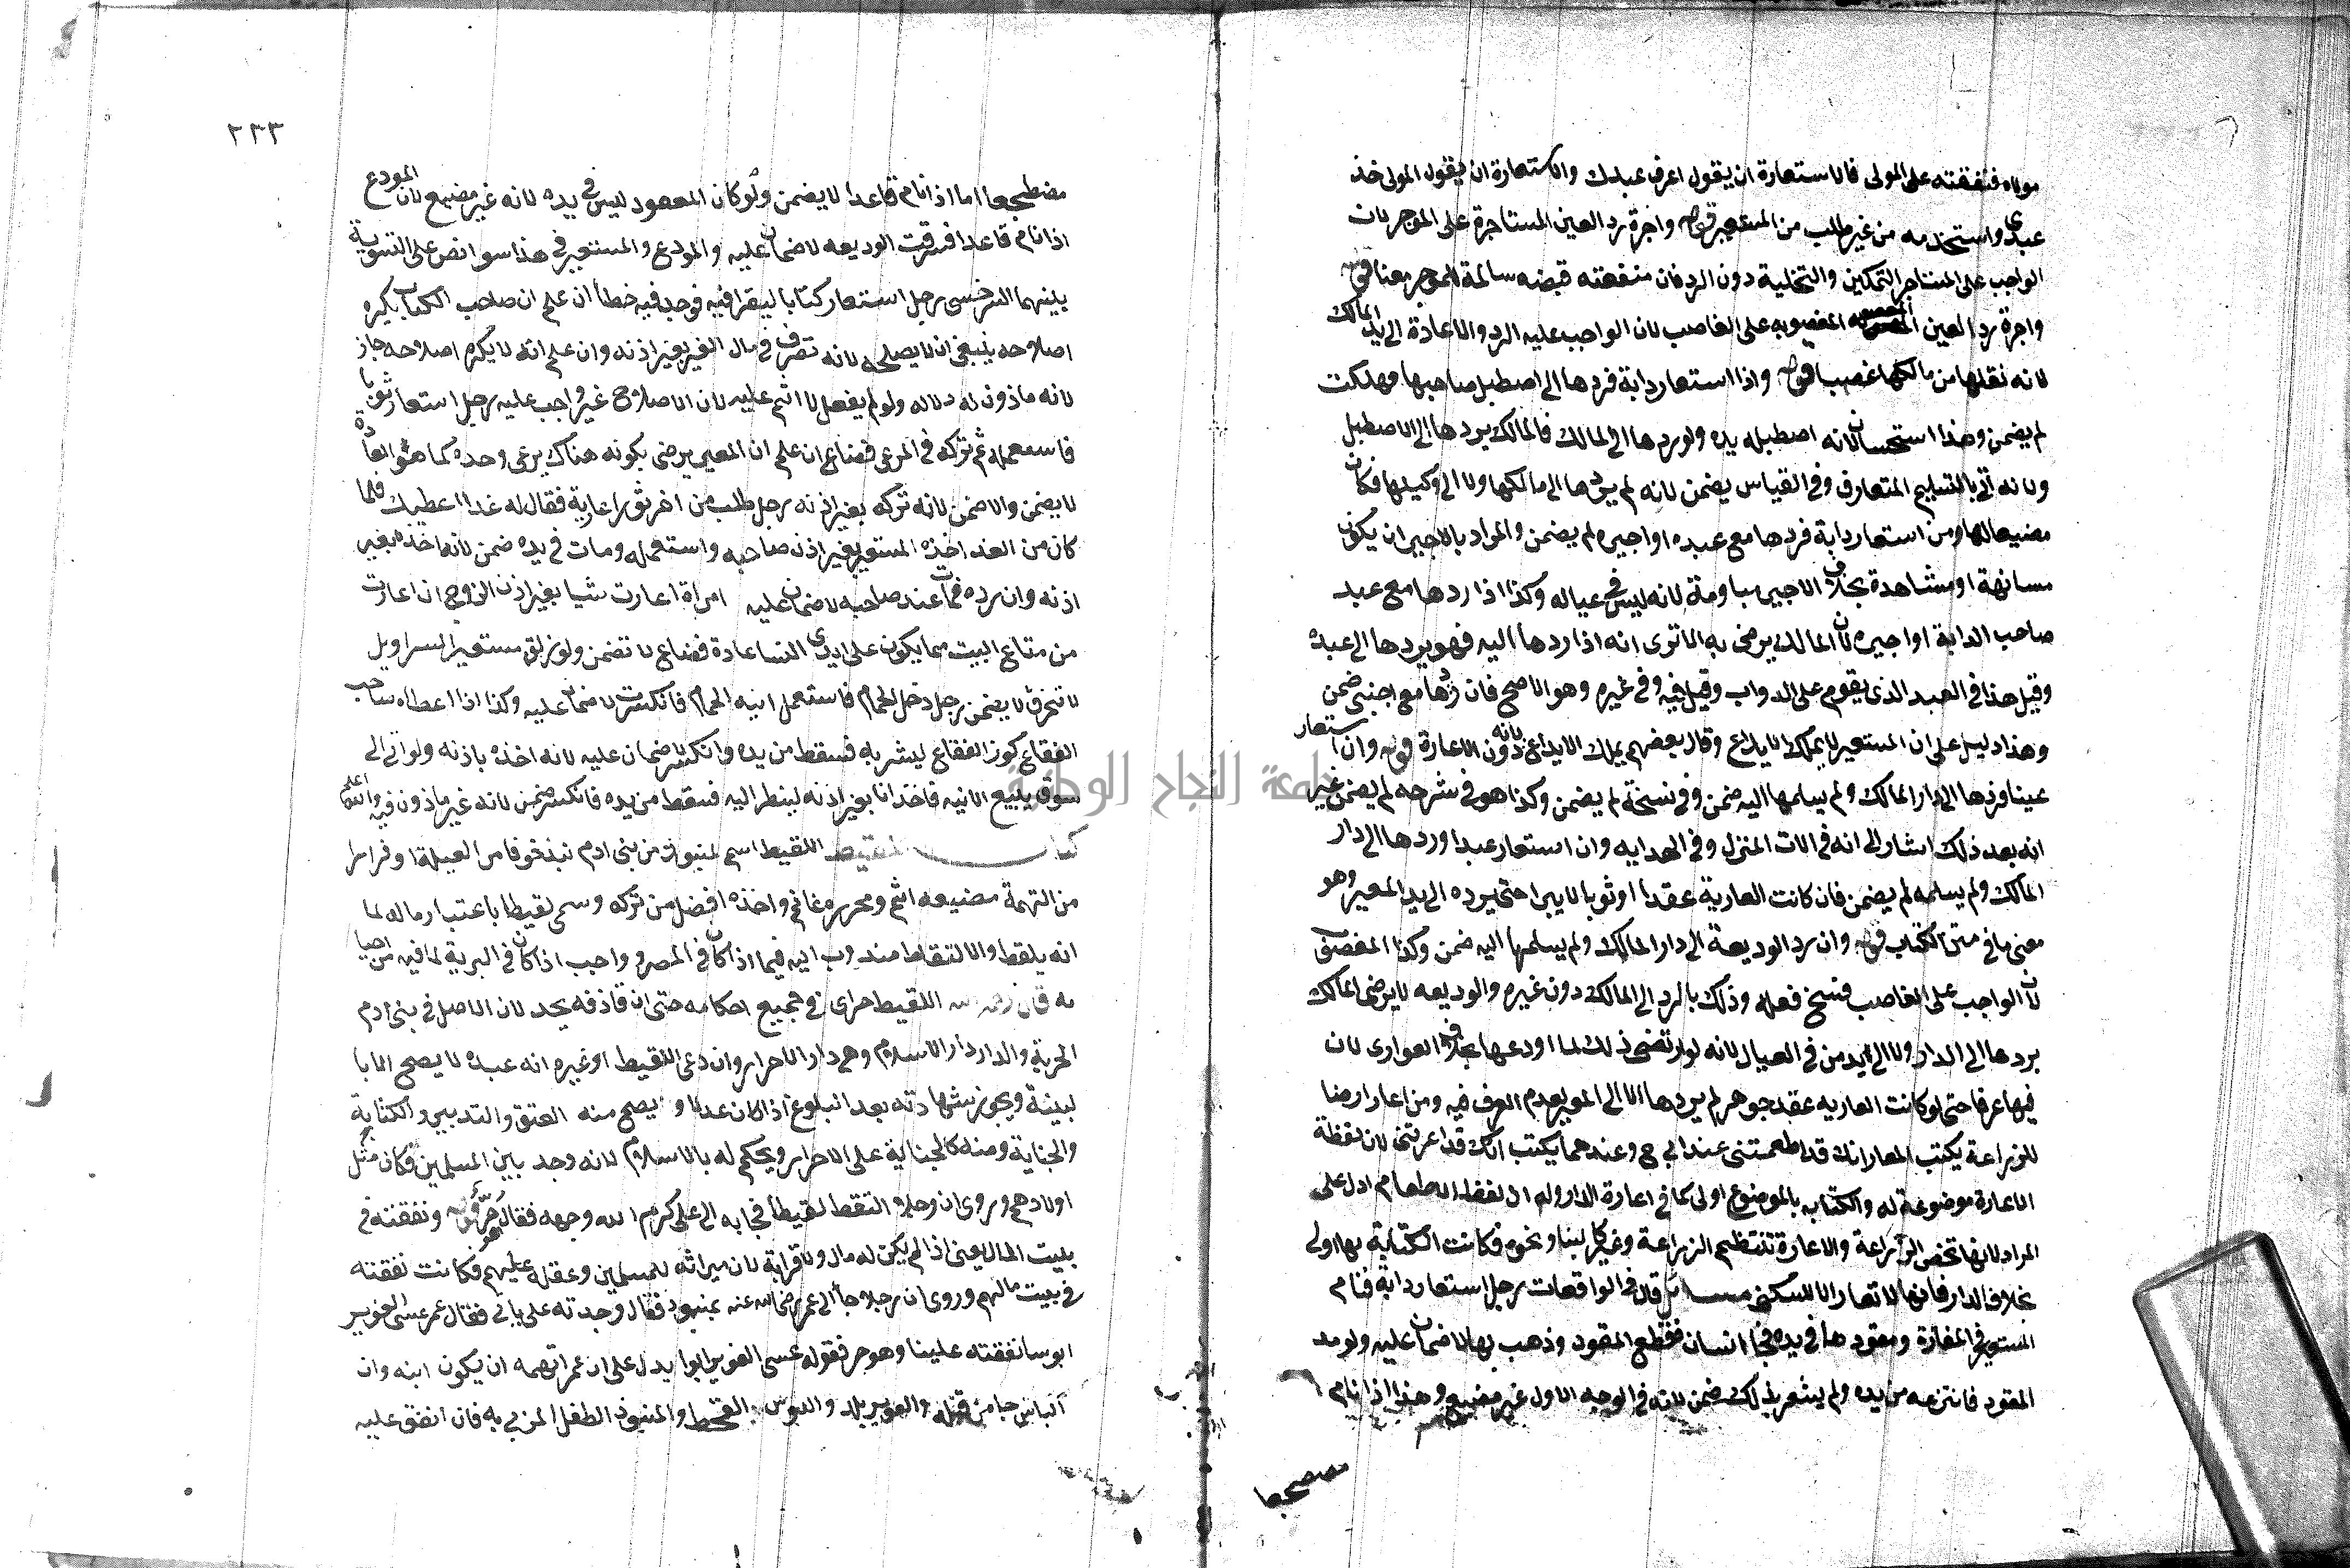 مولاه فنفقته على المولى فالاستعارة ان يقول اعرني عبدك والاستعارة ان يقول المولى خذ
عبدي واستخدمه من غير طلب من المستعير قوله واجرة رد العين المستاجرة على الموجر لان
الواجب على المستاجر التمكين والتخلية دون الرد فان منفعته قبضه سالمة للموجر معنا قوله
واجرة رد العين المغصوبه على الغاصب لان الواجب عليه الرد والاعادة الى يد المالك
لانه نقلها من مالكها غصبا قوله واذا استعار دابة فردها الى اصطبل صاحبها فهلكت
لم يضمن وهذا استحسان لانه اصطبله يده ولو ردها الى المالك فالمالك يردها الى الاصطبل
ولانه اتى بالتسليم المتعارف وفي القياس يضمن لانه لم يردها الى مالكها ولا الى وكيلها فكان
مضيعا لها ومن استعار دابة فردها مع عبده او اجيره لم يضمن والمراد بالاجير ان يكون
مسانهة او مشاهدة بخلاف الاجير مياومة لانه ليس في عياله وكذا اذا ردها مع عبد
صاحب الدابة او اجيره لان المالك يرضى به الا ترى انه اذا ردها اليه فهو يردها الى عبده
وقيل هذا في العبد الذي يقوم على الدواب وقيل فيه وفي غيره وهو الاصح فان ردها مع اجنبي ضمن
وهذا دليل على ان المستعير لا يملك الايداع وقال بعضهم يملك الايداع لانه دون الاعارة قوله وان استعار
عينا فردها الى دار المالك ولم يسلمها اليه ضمن وفي نسخة لم يضمن وكذا هو في شرحه لم يضمن غير
انه بعد ذلك اشار الى انه في الات المنزل وفي الهدايه وان استعار عبدا وردها الى دار
المالك ولم يسلمه لم يضمن فان كانت العارية عقدا او ثوبا لا يبرا حتى يرده الى يد المعير وهو
معنى ما في متن الكتاب قوله وان رد الوديعة الى دار المالك ولم يسلمها اليه ضمن وكذا المغصوب
لان الواجب على الغاصب فسخ فعله وذلك بالرد الى المالك دون غيره والوديعه لا يرضى المالك
بردها الى الدار ولا الى يد من في العيال لانه لو ارتضى ذلك لما اودعها بخلاف العواري لان
فيها عرفا حتى لو كانت العاريه عقد جوهر لم يردها الا الى المعير لعدم العرف فيه ومن اعار ارضا
للزراعة يكتب المعار انك قد اطعمتني عند ابي ح وعندهما يكتب انك قد اعرتني لان لفظة
الاعارة موضوعة له والكتابه بالموضوع اولى كما في اعارة الدار وله ان لفظ الاطعام ادل على
المراد لانها تخص الزراعة والاعارة تنتظم الزراعة وغيرها كالبنا ونحوه فكانت الكتابة بها اولى
بخلاف الدار فانها لا تعار الا للسكنى مسائل قال في الواقعات رجل استعار دابة فنام
المستعير في المفازة ومقودها في يده فجا انسان فقطع المقود وذهب بها لا ضمان عليه ولو مد
المقود فانتزعه من يده ولم يشعر بذلك ضمن لانه في الوجه الاول غير مضيع وهذا اذا نام
مضطجعا
٢٣٣
مضطجعا اما اذا نام قاعدا لا يضمن ولو كان المقود ليس في يده لانه غير مضيع لان المودع
اذا نام قاعدا فسرقت الوديعه لا ضمان عليه والمودع والمستعير في هذا سوا نص على التسوية
بينهما السرخسي رجل استعار كتابا ليقرا فيه فوجد فيه خطأ ان علم ان صاحب الكتاب يكره
اصلاحه ينبغي ان لا يصلحه لانه تصرف في مال الغير بغير اذنه وان علم انه لا يكره اصلاحه جاز
لانه ماذون له دلاله ولو لم يفعل لا اثم عليه لان الاصلاح غير واجب عليه رجل استعار ثورا
فاستعمله ثم تركه في المرعى فضاع ان علم ان المعير يرضى بكونه هناك يرعى وحده كما هو العادة
لا يضمن والا ضمن لانه تركه بغير اذنه رجل طلب من اخر ثورا عارية فقال له غدا اعطيك فلما
كان من الغد اخذه المستعير بغير اذن صاحبه واستعمله ومات في يده ضمن لانه اخذه بغير
اذنه وان رده فمات عند صاحبه لا ضمان عليه امراة اعارت شيا بغير اذن الزوج ان اعارت
من متاع البيت مما يكون على ايدي النسا عادة فضاع لا تضمن ولو زلق مستعير السراويل
لا تخرق لا يضمن رجل دخل الحمام فاستعمل انية الحمام فانكسرت لا ضمان عليه وكذا اذا اعطاه صاحب
الفقاع كوز الفقاع ليشربه فسقط من يده وانكسر لا ضمان عليه لانه اخذه باذنه ولو اتى الى
سوق يبيع الانيه فاخذ انا بغير اذنه لينظر اليه فسقط من يده فانكسر ضمن لانه غير ماذون فيه والله اعلم
كتاب اللقيط اللقيط اسم لمنبوذ من بني ادم نبذ خوفا من العيلة او فرارا
من التهمة مضيعه اثم ومحرره غانم واخذه افضل من تركه وسمي لقيطا باعتبار ماله لما
انه يلقط والالتقاط مندوب اليه فيما اذا كان في المصر وواجب اذا كان في البرية لما فيه من احيا
ئه قال رحمه الله اللقيط حر اي في جميع احكامه حتى ان قاذفه يحد لان الاصل في بني ادم
الحرية والدار دار الاسلام وهي دار الاحرار وان دعى اللقيط او غيره انه عبده لا يصح الا با
لبينة ويجوز شهادته بعد البلوغ اذا كان عدلا و يصح منه العتق والتدبير والكتابة
والجناية ومنه كالجناية على الاحرار ويحكم له بالاسلام لانه وجد بين المسلمين فكان مثل
اولادهم وروي ان رجلا التقط لقيطا فجا به الى علي كرم الله وجهه فقال هو حر قوله ونفقته في
بيت المال يعني اذا لم يكن له مال ولا قرابة لان ميراثه للمسلمين وعقله عليهم فكانت نفقته
في بيت مالهم وروي ان رجلا جا الى عمر رضي الله عنه بمنبوذ فقال وجدته على بابي فقال عمر عسى الغوير
ابوسا نفقته علينا وهو حر فقوله عسى الغوير ابوسا يدل على ان عمر اتهمه ان يكون ابنه وان
الباس جا من قبله والغوير بلد والبوس القحط والمنبوذ الطفل المرمي به فان انفق عليه
جامعة النجاح الوطنية